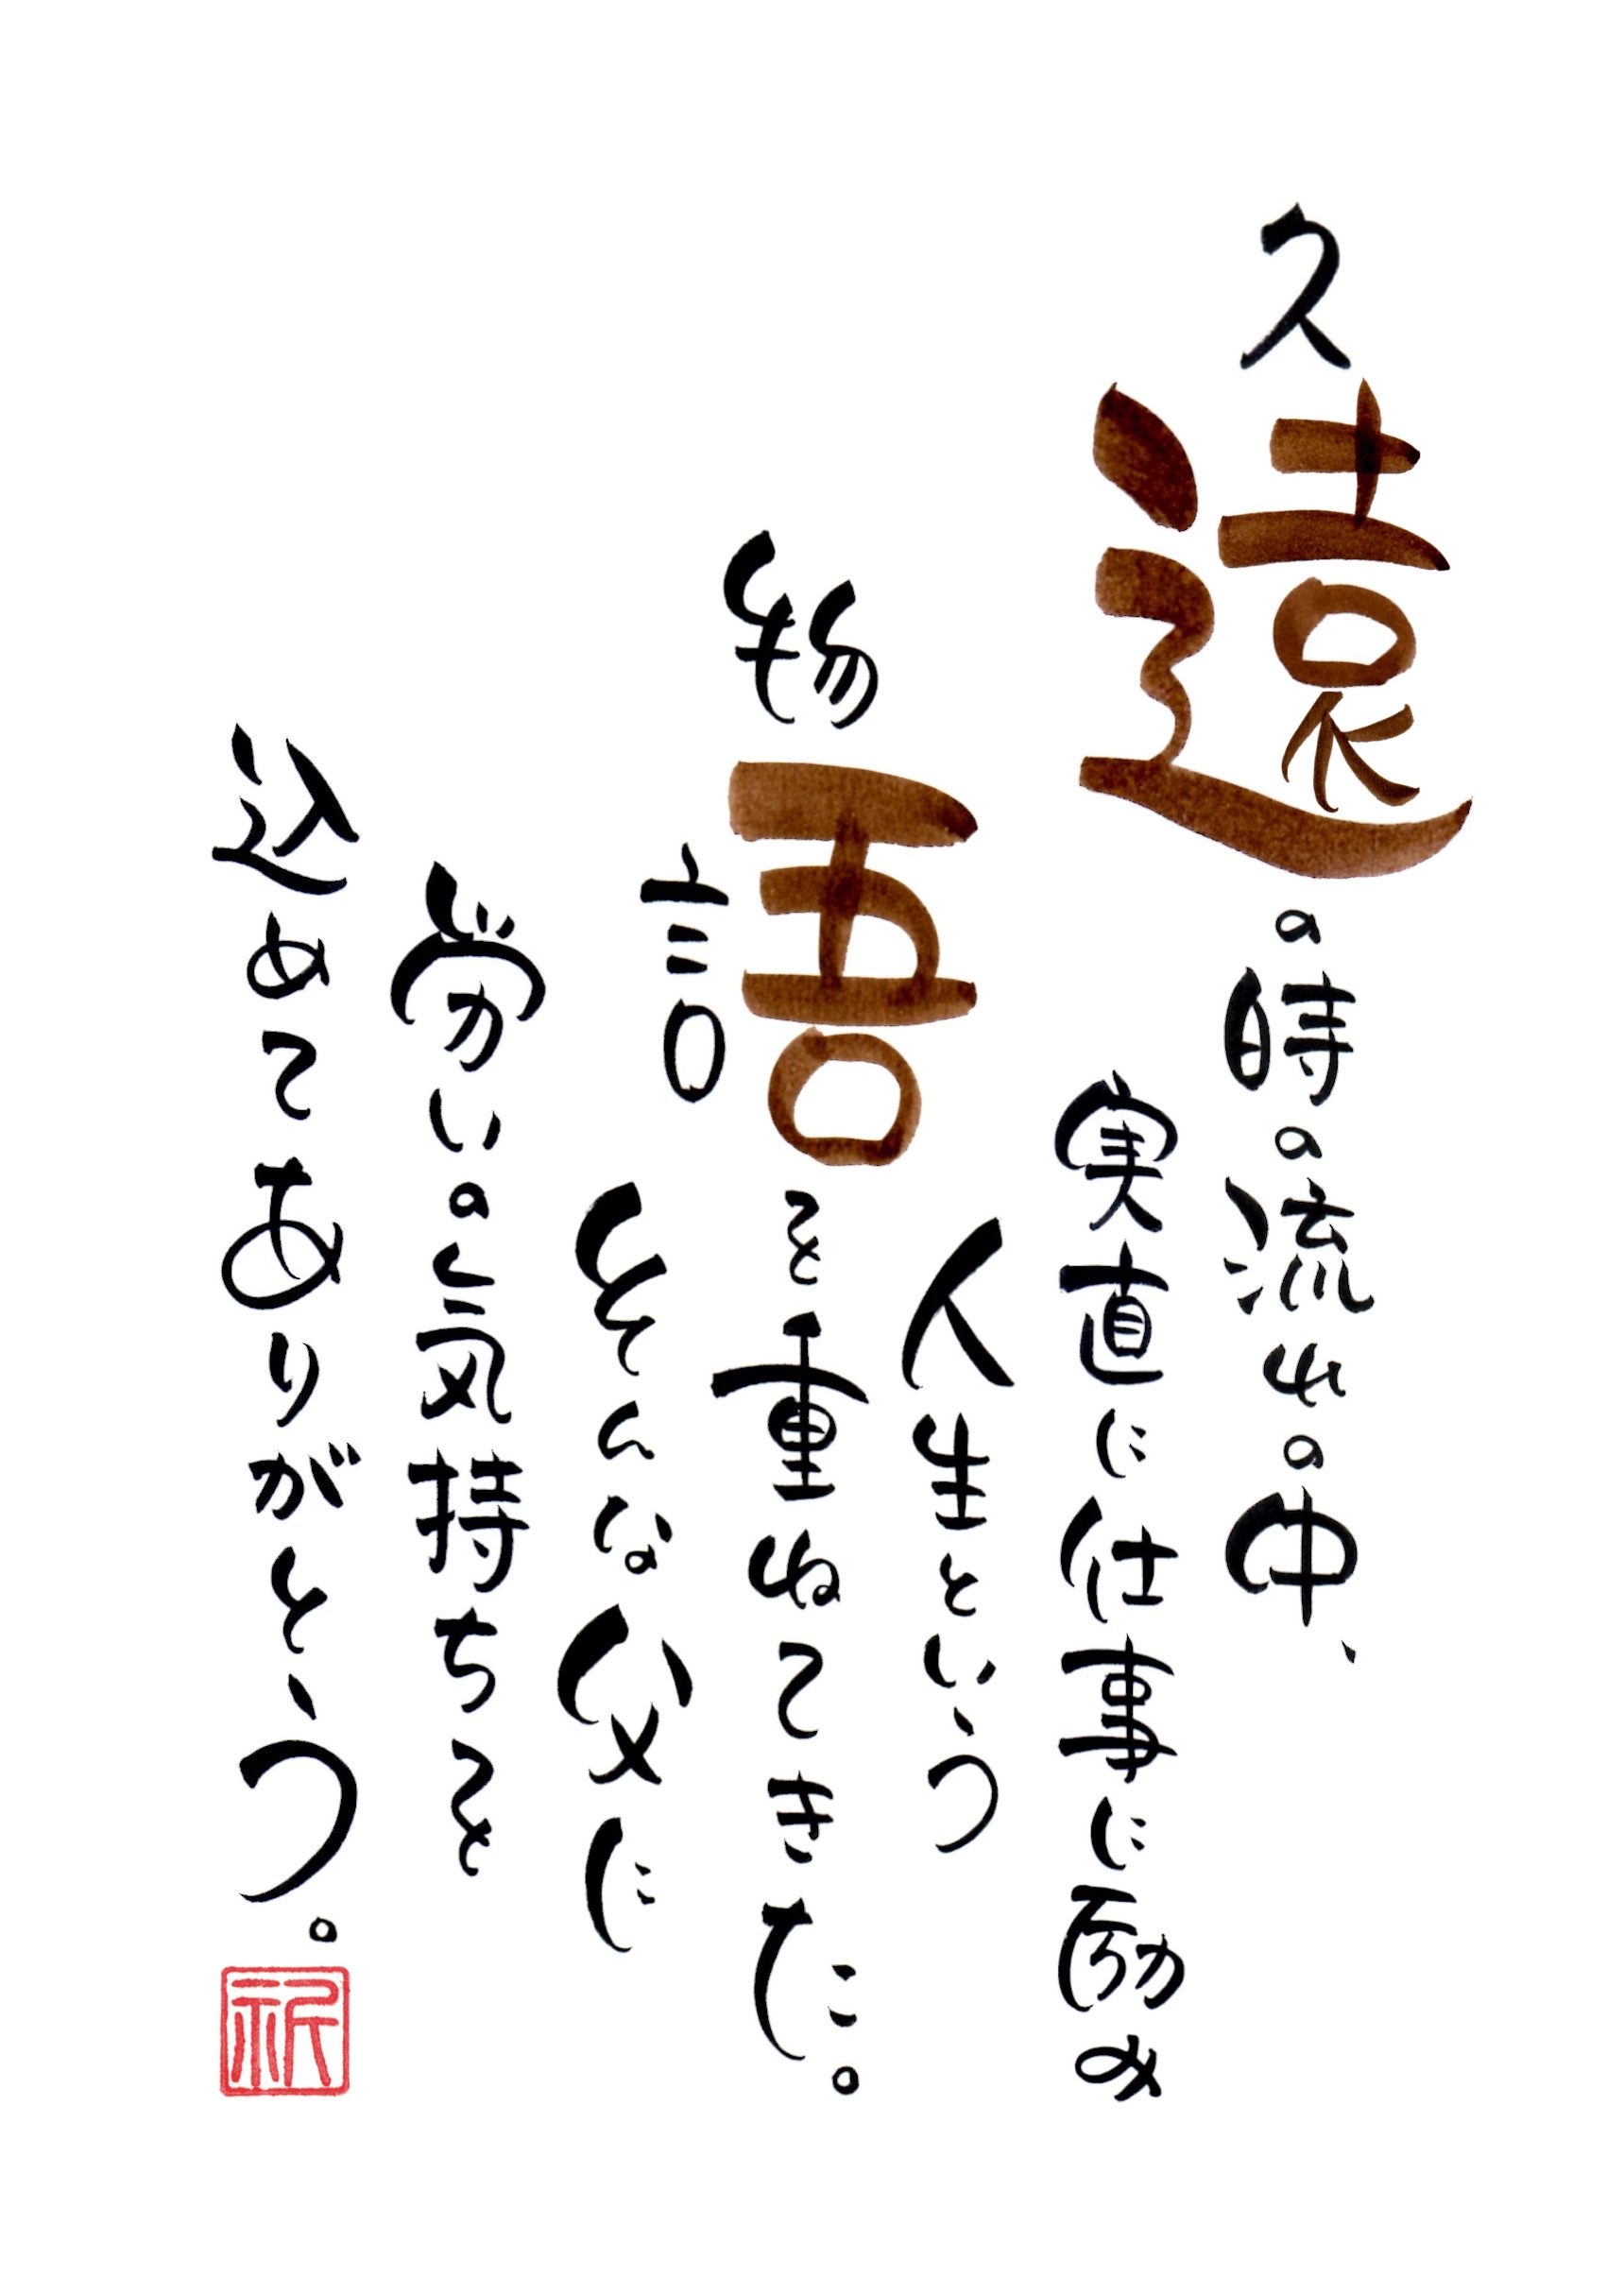 久遠の時の流れの中、
実直に仕事に励み
人生という
物語を重ねてきた。
そんな父に
労いの気持ちを
込めてありがとう。